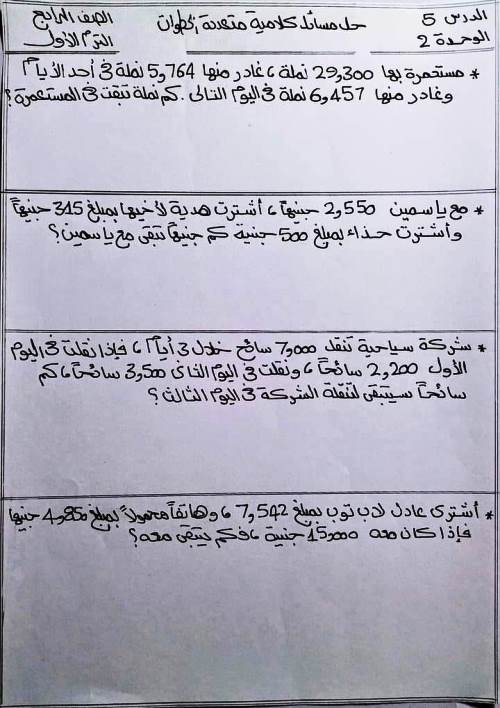 الدرس 5
الوحدة 2
حل مسائل كلامية متعددة الخطوات
الصف الرابع
الترم الأول
* مستعمرة بها 29,300 نملة ، غادر منها 5,764 نملة فى أحد الأيام
وغادر منها 6,457 نملة فى اليوم التالى . كم نملة تبقت فى المستعمرة ؟
* مع ياسمين 2,550 جنيهاً ، أشترت هدية لأخيها بمبلغ 345 جنيهاً
وأشترت حذاء بمبلغ 500 جنية كم جنيهاً تبقى مع ياسمين ؟
* شركة سياحية تنقل 7,000 سائح خلال 3 أيام ، فإذا نقلت فى اليوم
الأول 2,200 سائحاً ، ونقلت فى اليوم الثانى 3,500 سائحاً ، كم
سائحاً سيتبقى لتنقلة الشركة فى اليوم الثالث ؟
* أشترى عادل لاب توب بمبلغ 7,542 ، وهاتفاً محمولاً بمبلغ 4,850 جنيها
فإذا كان معه 15,000 جنية ، فكم يتبقى معه ؟